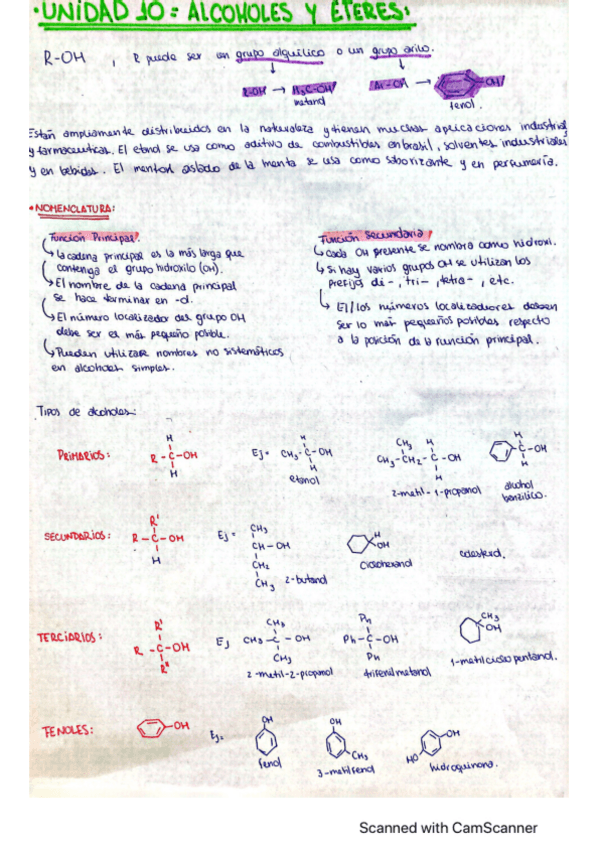 ·UNIDAD 10: ALCOHOLES Y ÉTERES:
R-OH , R puede ser un grupo alquílico o un grupo arilo.
R-OH → H₃C-OH Ar-OH → OH
metanol fenol.
Están ampliamente distribuidos en la naturaleza y tienen muchas aplicaciones industrial
y farmaceuticas. El etanol se usa como aditivo de combustibles en brasil, solventes industriales
y en bebidas. El mentol aislado de la menta se usa como saborizante y en perfumería.
·NOMENCLATURA:
Función Principal.
La cadena principal es la más larga que
contenga el grupo hidroxilo (OH).
El nombre de la cadena principal
se hace terminar en -ol.
El número localizador del grupo OH
debe ser el más pequeño posible.
Pueden utilizarse nombres no sistemáticos
en alcoholes simples.
Función Secundaria
Cada OH presente se nombra como hidroxi.
Si hay varios grupos OH se utilizan los
prefijos di-, tri-, tetra-, etc.
El/los números localizadores deben
ser lo más pequeños posibles respecto
a la posición de la función principal.
Tipos de alcoholes:
H H CH₃ H H
PRIMARIOS: R-C-OH Ej= CH₃-C-OH CH₃-CH₂-C-OH C-OH
H H H H
etanol 2-metil-1-propanol alcohol
bencílico.
R' CH₃ H
SECUNDARIOS: R-C-OH Ej= CH-OH OH colesterol.
H CH₂ ciclohexanol
CH₃ 2-butanol
R' CH₃ Ph CH₃
TERCIARIOS: R-C-OH Ej CH₃-C-OH Ph-C-OH OH
R" CH₃ Ph
2-metil-2-propanol trifenilmetanol 1-metilciclopentanol.
FENOLES: OH Ej= OH OH OH
CH₃ HO
fenol 3-metilfenol hidroquinona.
Scanned with CamScanner